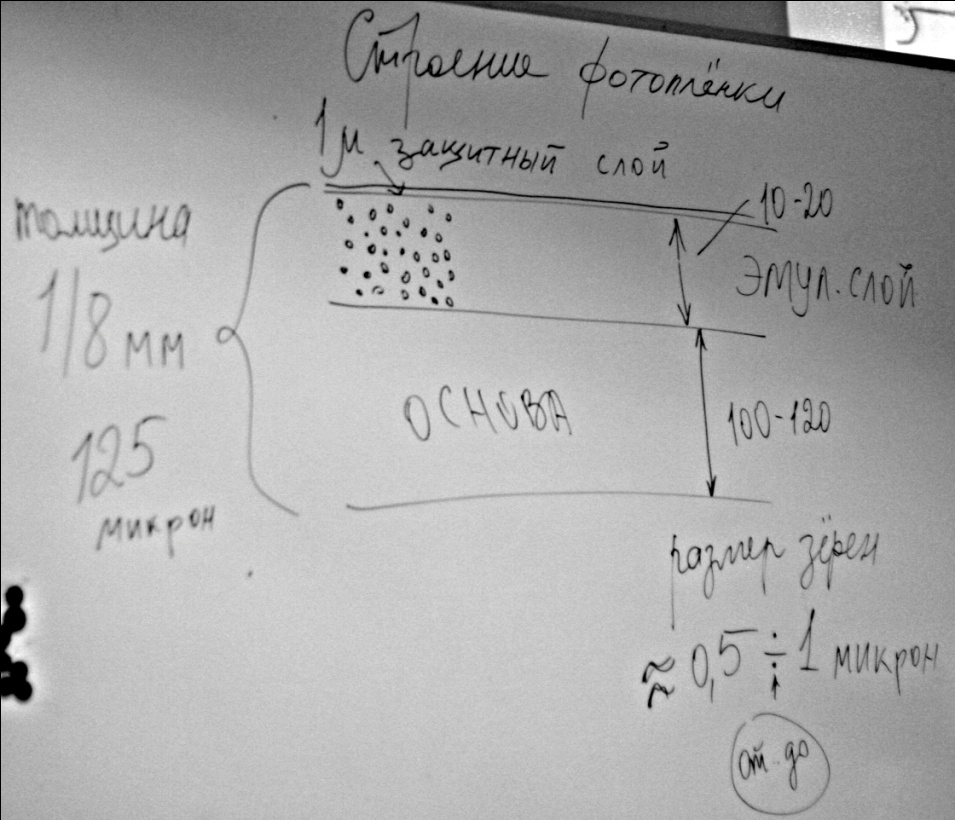 Строение фотоплёнки
1 м защитный слой
толщина
1/8 мм
125
микрон
10-20
ЭМУЛ. СЛОЙ
ОСНОВА
100-120
размер зёрен
≈ 0,5 ÷ 1 микрон
от до